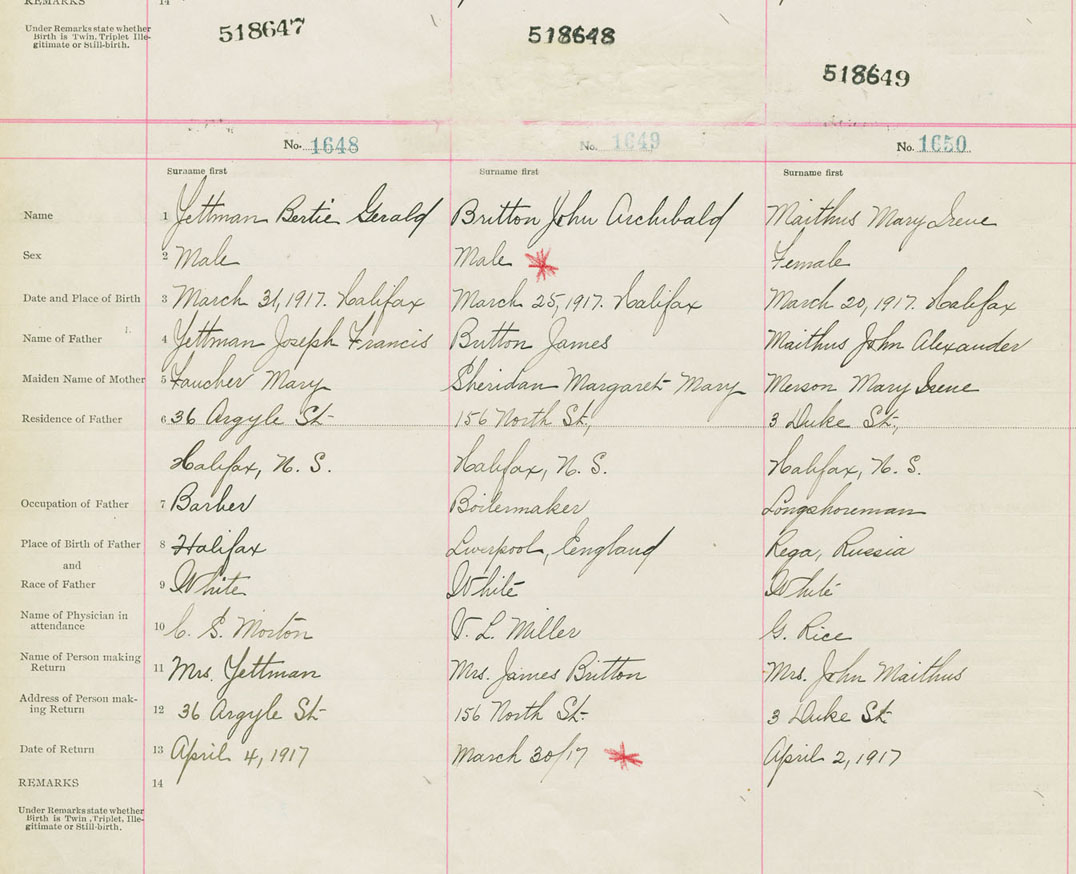 REMARKS 14
Under Remarks state whether
Birth is Twin, Triplet, Ille-
gitimate or Still-birth.
518647 518648 518649
No. 1648 No. 1649 No. 1650
Surname first Surname first Surname first
Name 1 Yettman Bertie Gerald Britton John Archibald Maithus Mary Irene
Sex 2 Male Male Female
Date and Place of Birth 3 March 31, 1917. Halifax March 25, 1917. Halifax March 20, 1917. Halifax
Name of Father 4 Yettman Joseph Francis Britton James Maithus John Alexander
Maiden Name of Mother 5 Faucher Mary Sheridan Margaret Mary Merson Mary Irene
Residence of Father 6 36 Argyle St. 156 North St., 3 Duke St.,
Halifax, N. S. Halifax, N. S. Halifax, N. S.
Occupation of Father 7 Barber Boilermaker Longshoreman
Place of Birth of Father 8 Halifax Liverpool, England Rega, Russia
and
Race of Father 9 White White White
Name of Physician in
attendance 10 C. S. Morton V. L. Miller G. Rice
Name of Person making
Return 11 Mrs. Yettman Mrs. James Britton Mrs. John Maithus
Address of Person mak-
ing Return 12 36 Argyle St. 156 North St. 3 Duke St.
Date of Return 13 April 4, 1917 March 30/17 April 2, 1917
REMARKS 14
Under Remarks state whether
Birth is Twin, Triplet, Ille-
gitimate or Still-birth.